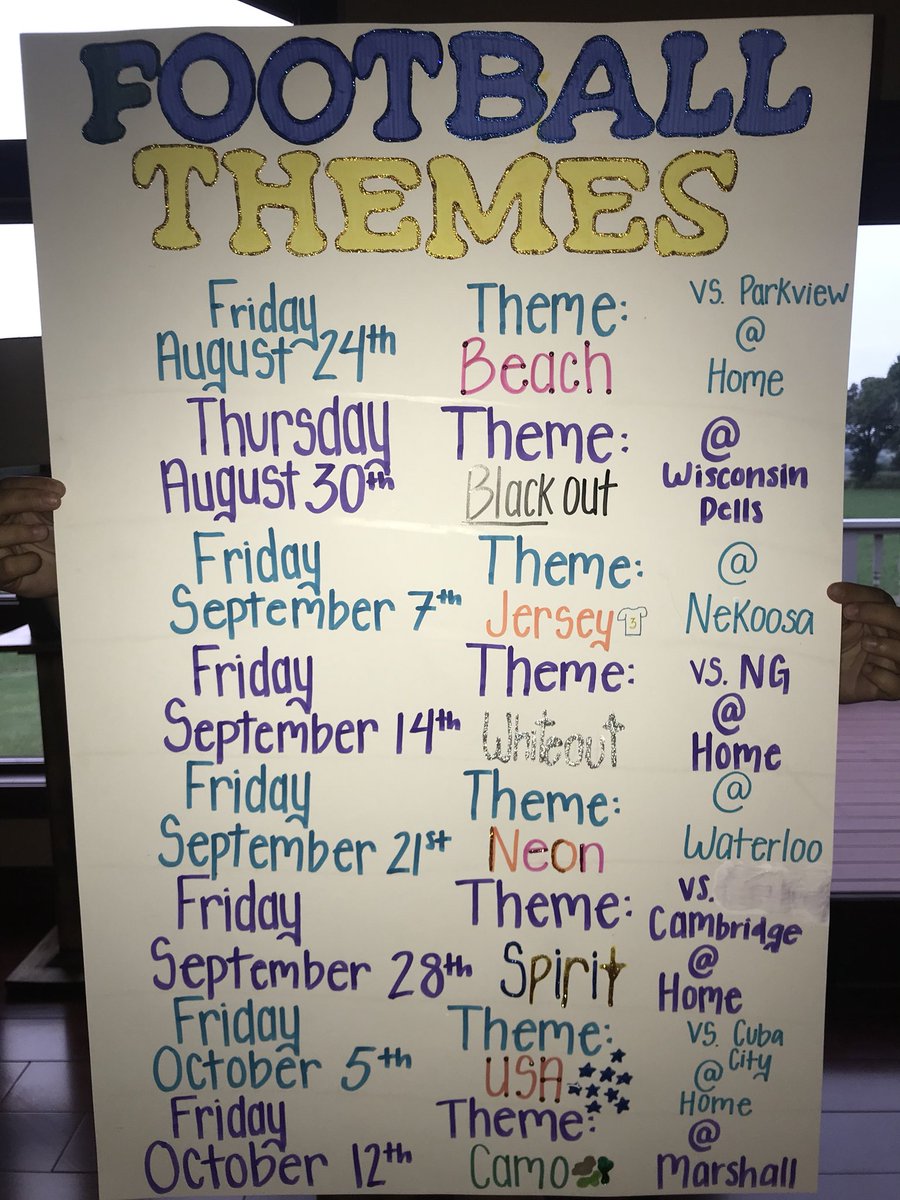 FOOTBALL
THEMES
Friday August 24th Theme: Beach vs. Parkview @ Home
Thursday August 30th Theme: Black out @ Wisconsin Dells
Friday September 7th Theme: Jersey 3 @ Nekoosa
Friday September 14th Theme: Whiteout vs. NG @ Home
Friday September 21st Theme: Neon @ Waterloo
Friday September 28th Theme: Spirit vs. Cambridge @ Home
Friday October 5th Theme: USA vs. Cuba City @ Home
Friday October 12th Theme: Camo @ Marshall